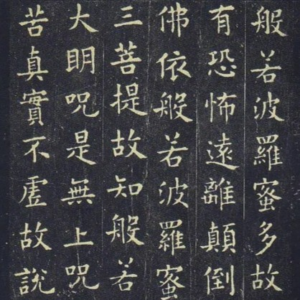 般若波羅蜜多故
有恐怖遠離顛倒
佛依般若波羅蜜
三菩提故知般若
大明呪是無上呪
苦真實不虛故說